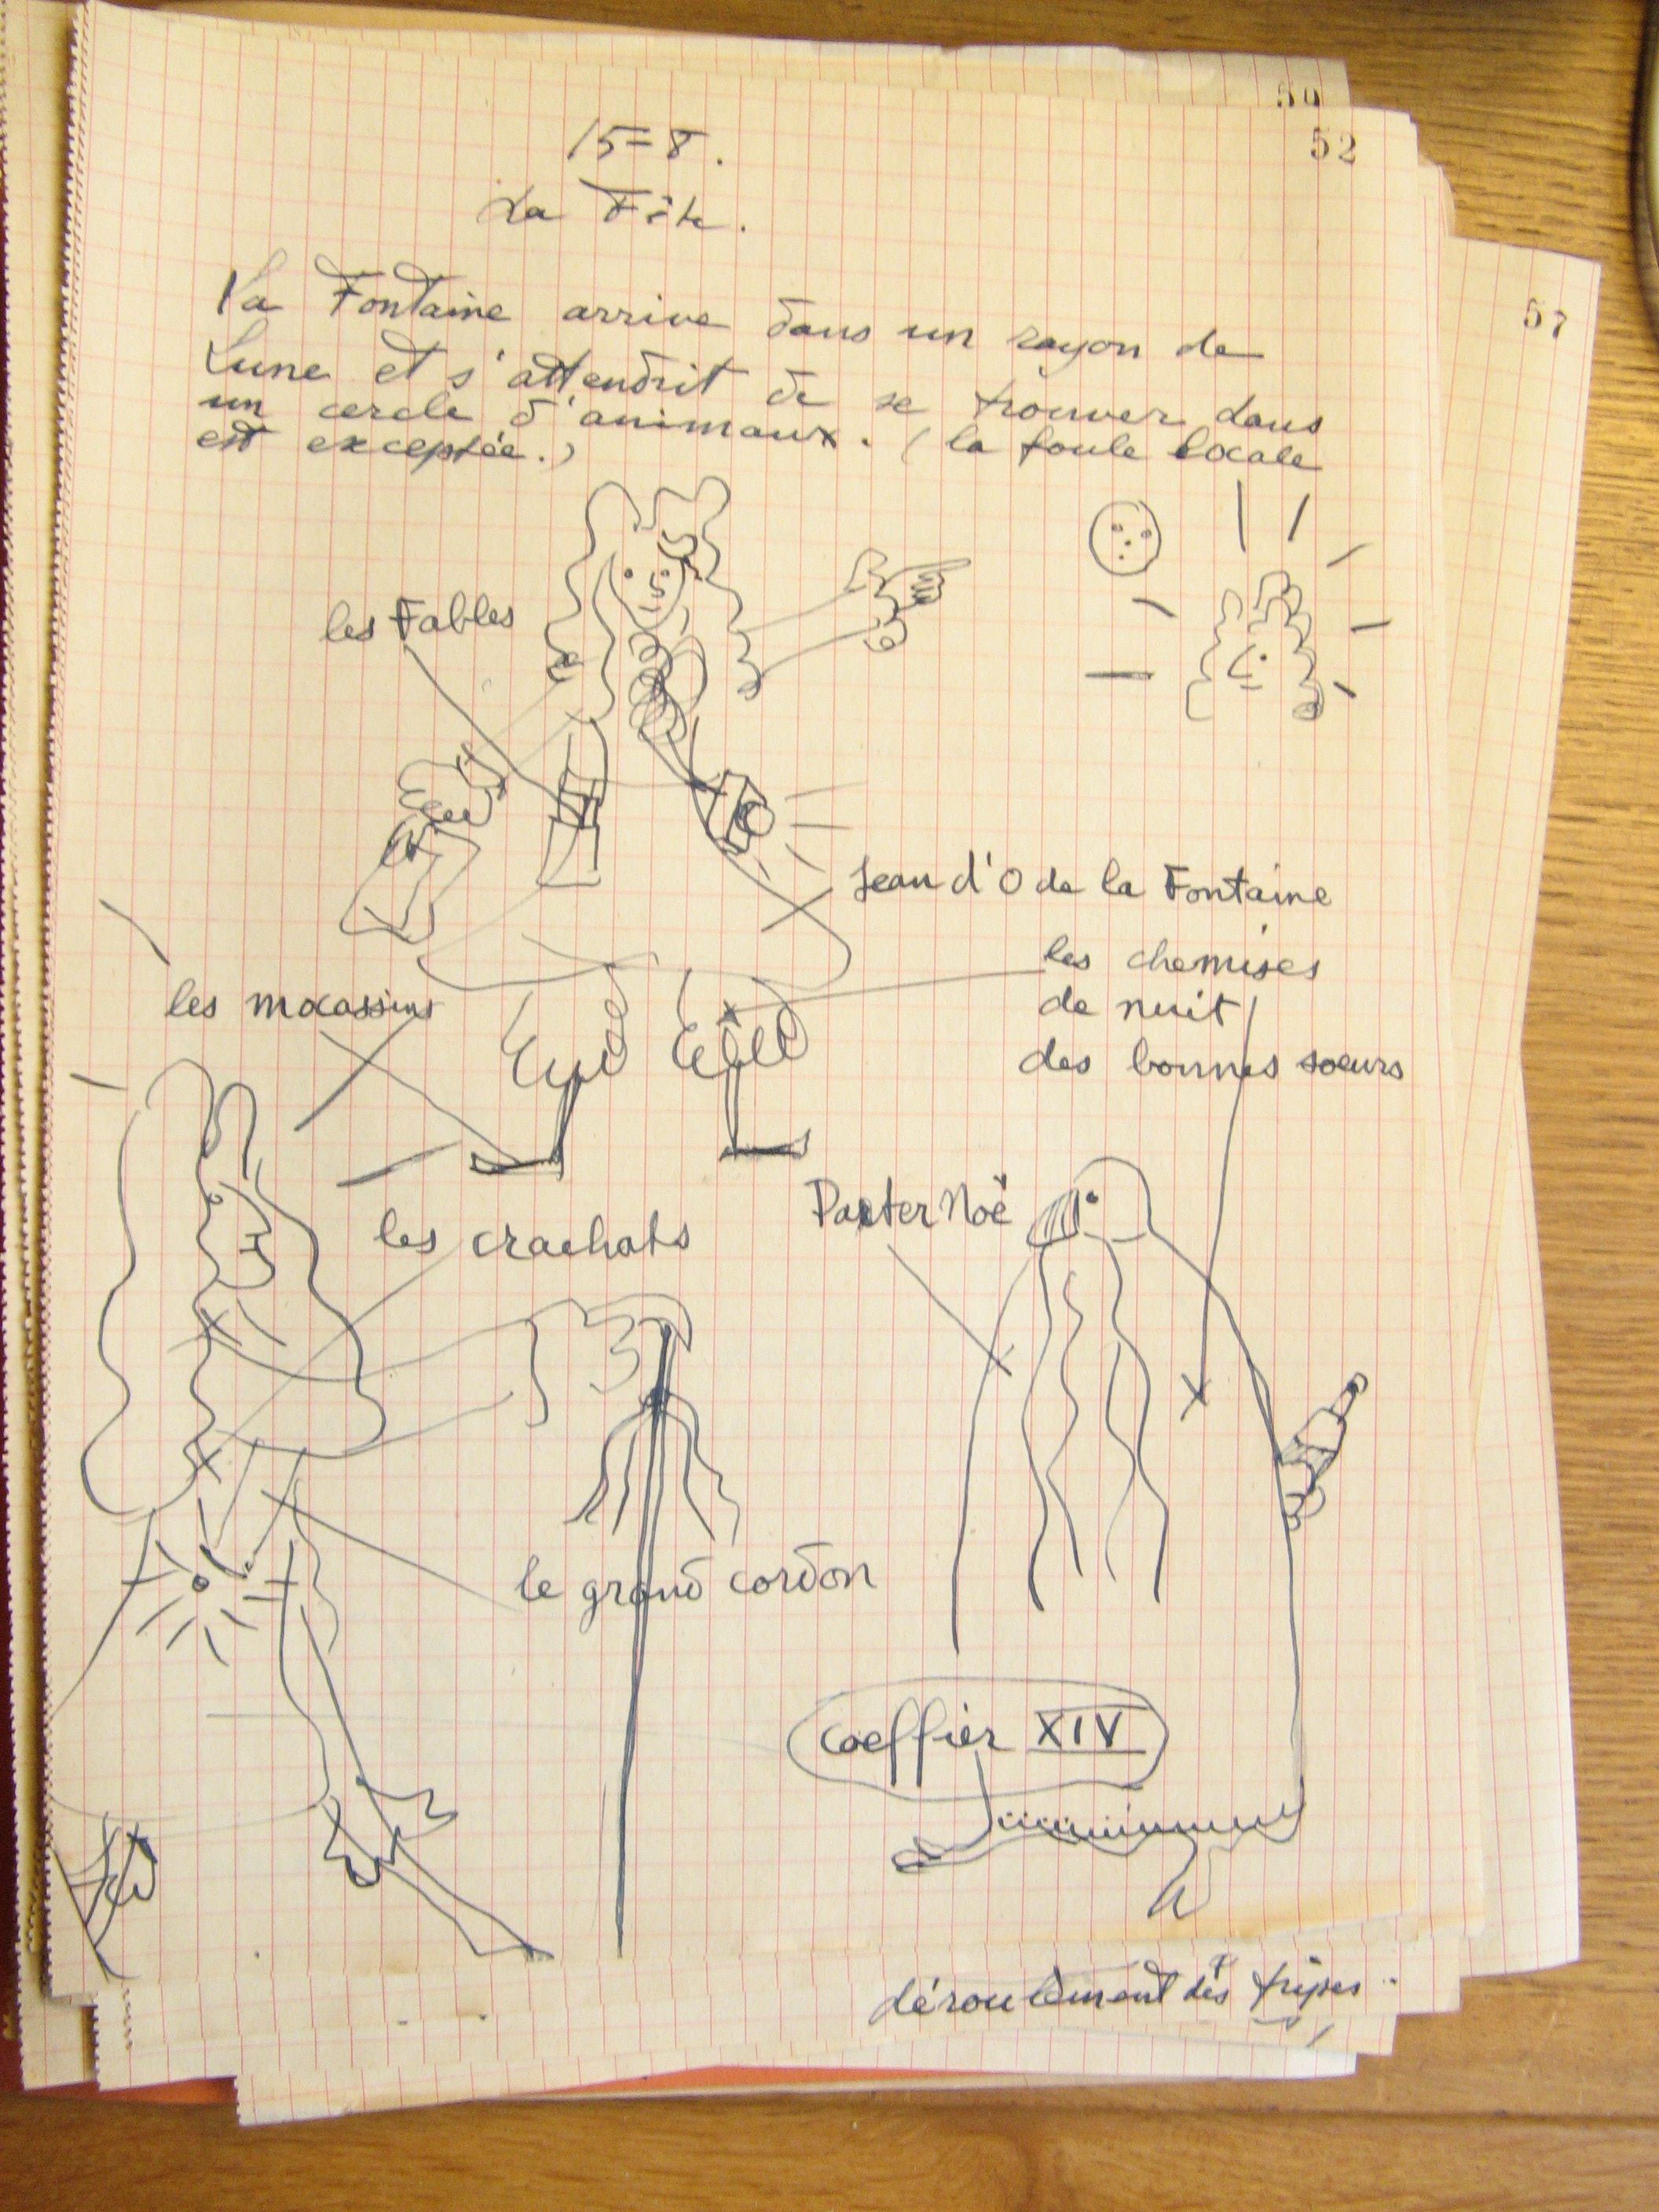 50
52
57
15=8.
La Fête.
La Fontaine arrive dans un rayon de
Lune et s'attendrit de se trouver dans
un cercle d'animaux. (la foule locale
est exceptée.)
les Fables
Jean d'O de la Fontaine
les chemises
de nuit
des bonnes soeurs
les mocassins
les crachats
Pater Noë
le grand cordon
Coeffier XIV
déroulement des tripes.